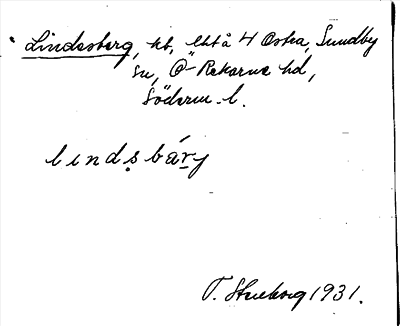 Lindesberg, hb, Ekt å 4 Östra, Sundby
sn, Ö-Rekarne hd,
Söderm. l.
lindsbárj
T. Stueborg 1931.